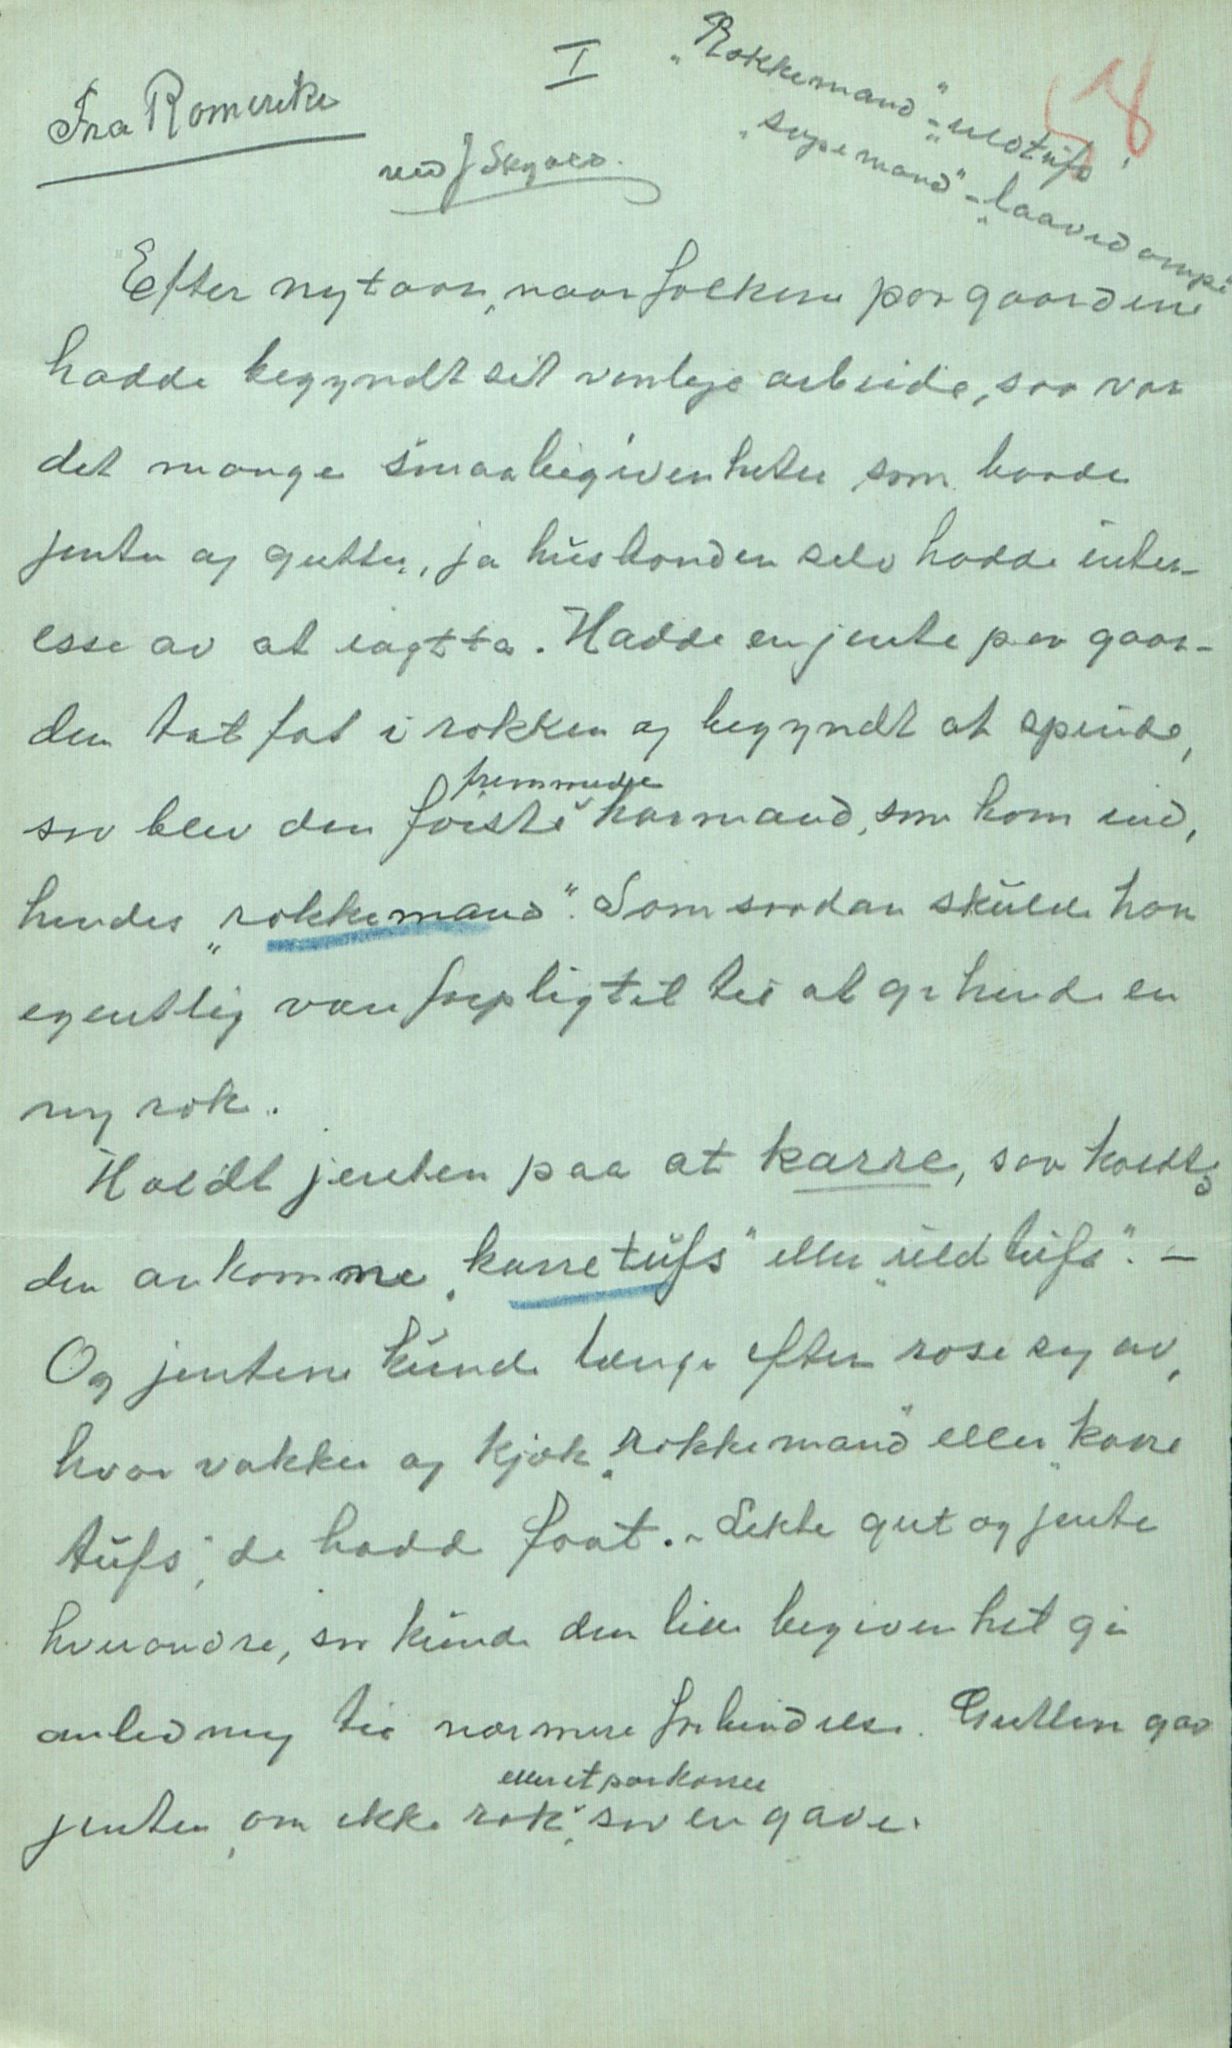 I
Fra Romerike
ved J Skyrud.
"Rokkemand" - "uldtufs"
"sopemand" - "laavedompe"
58
Efter nytaar, naar folkene paa gaardene
hadde begyndt sit vanlige arbeide, saa var
det mange smaabegivenheter som baade
jenter og gutter, ja husbonden selv hadde inter-
esse av at iagtta. Hadde en jente paa gaar-
den tat fat i rokken og begyndt at spinde,
fremmede
saa blev den første karmand, som kom ind,
hendes "rokkemand". Som saadan skulde han
egentlig være forpligtet til at gi hende en
ny rok.
Holdt jenten paa at karre, saa kaldtes
den ankomne "karretufs" eller "uldtufs". –
Og jentene kunde længe efter rose seg av,
hvor vakker og kjæk "rokkemand" eller "karre
tufs", de hadde faat. - Likte gut og jente
hverandre, saa kunde den lille begivenhet gi
anledning til nærmere forbindelse. Gutten gav
eller et par karrer
jenten, om ikke rok, saa en gave.